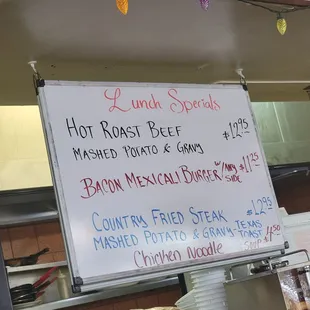 Lunch Specials
HOT ROAST BEEF $12.95
MASHED POTATO & GRAVY
BACON MEXICALI BURGER W/ANY SIDE $11.25
COUNTRY FRIED STEAK $12.95
MASHED POTATO & GRAVY-TEXAS TOAST
Chicken Noodle Soup $4.50